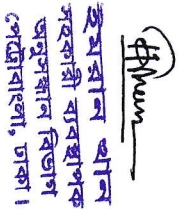 ইমরান খান
সহকারী ব্যবস্থাপক
অনুসন্ধান বিভাগ
পেট্রোবাংলা, ঢাকা।